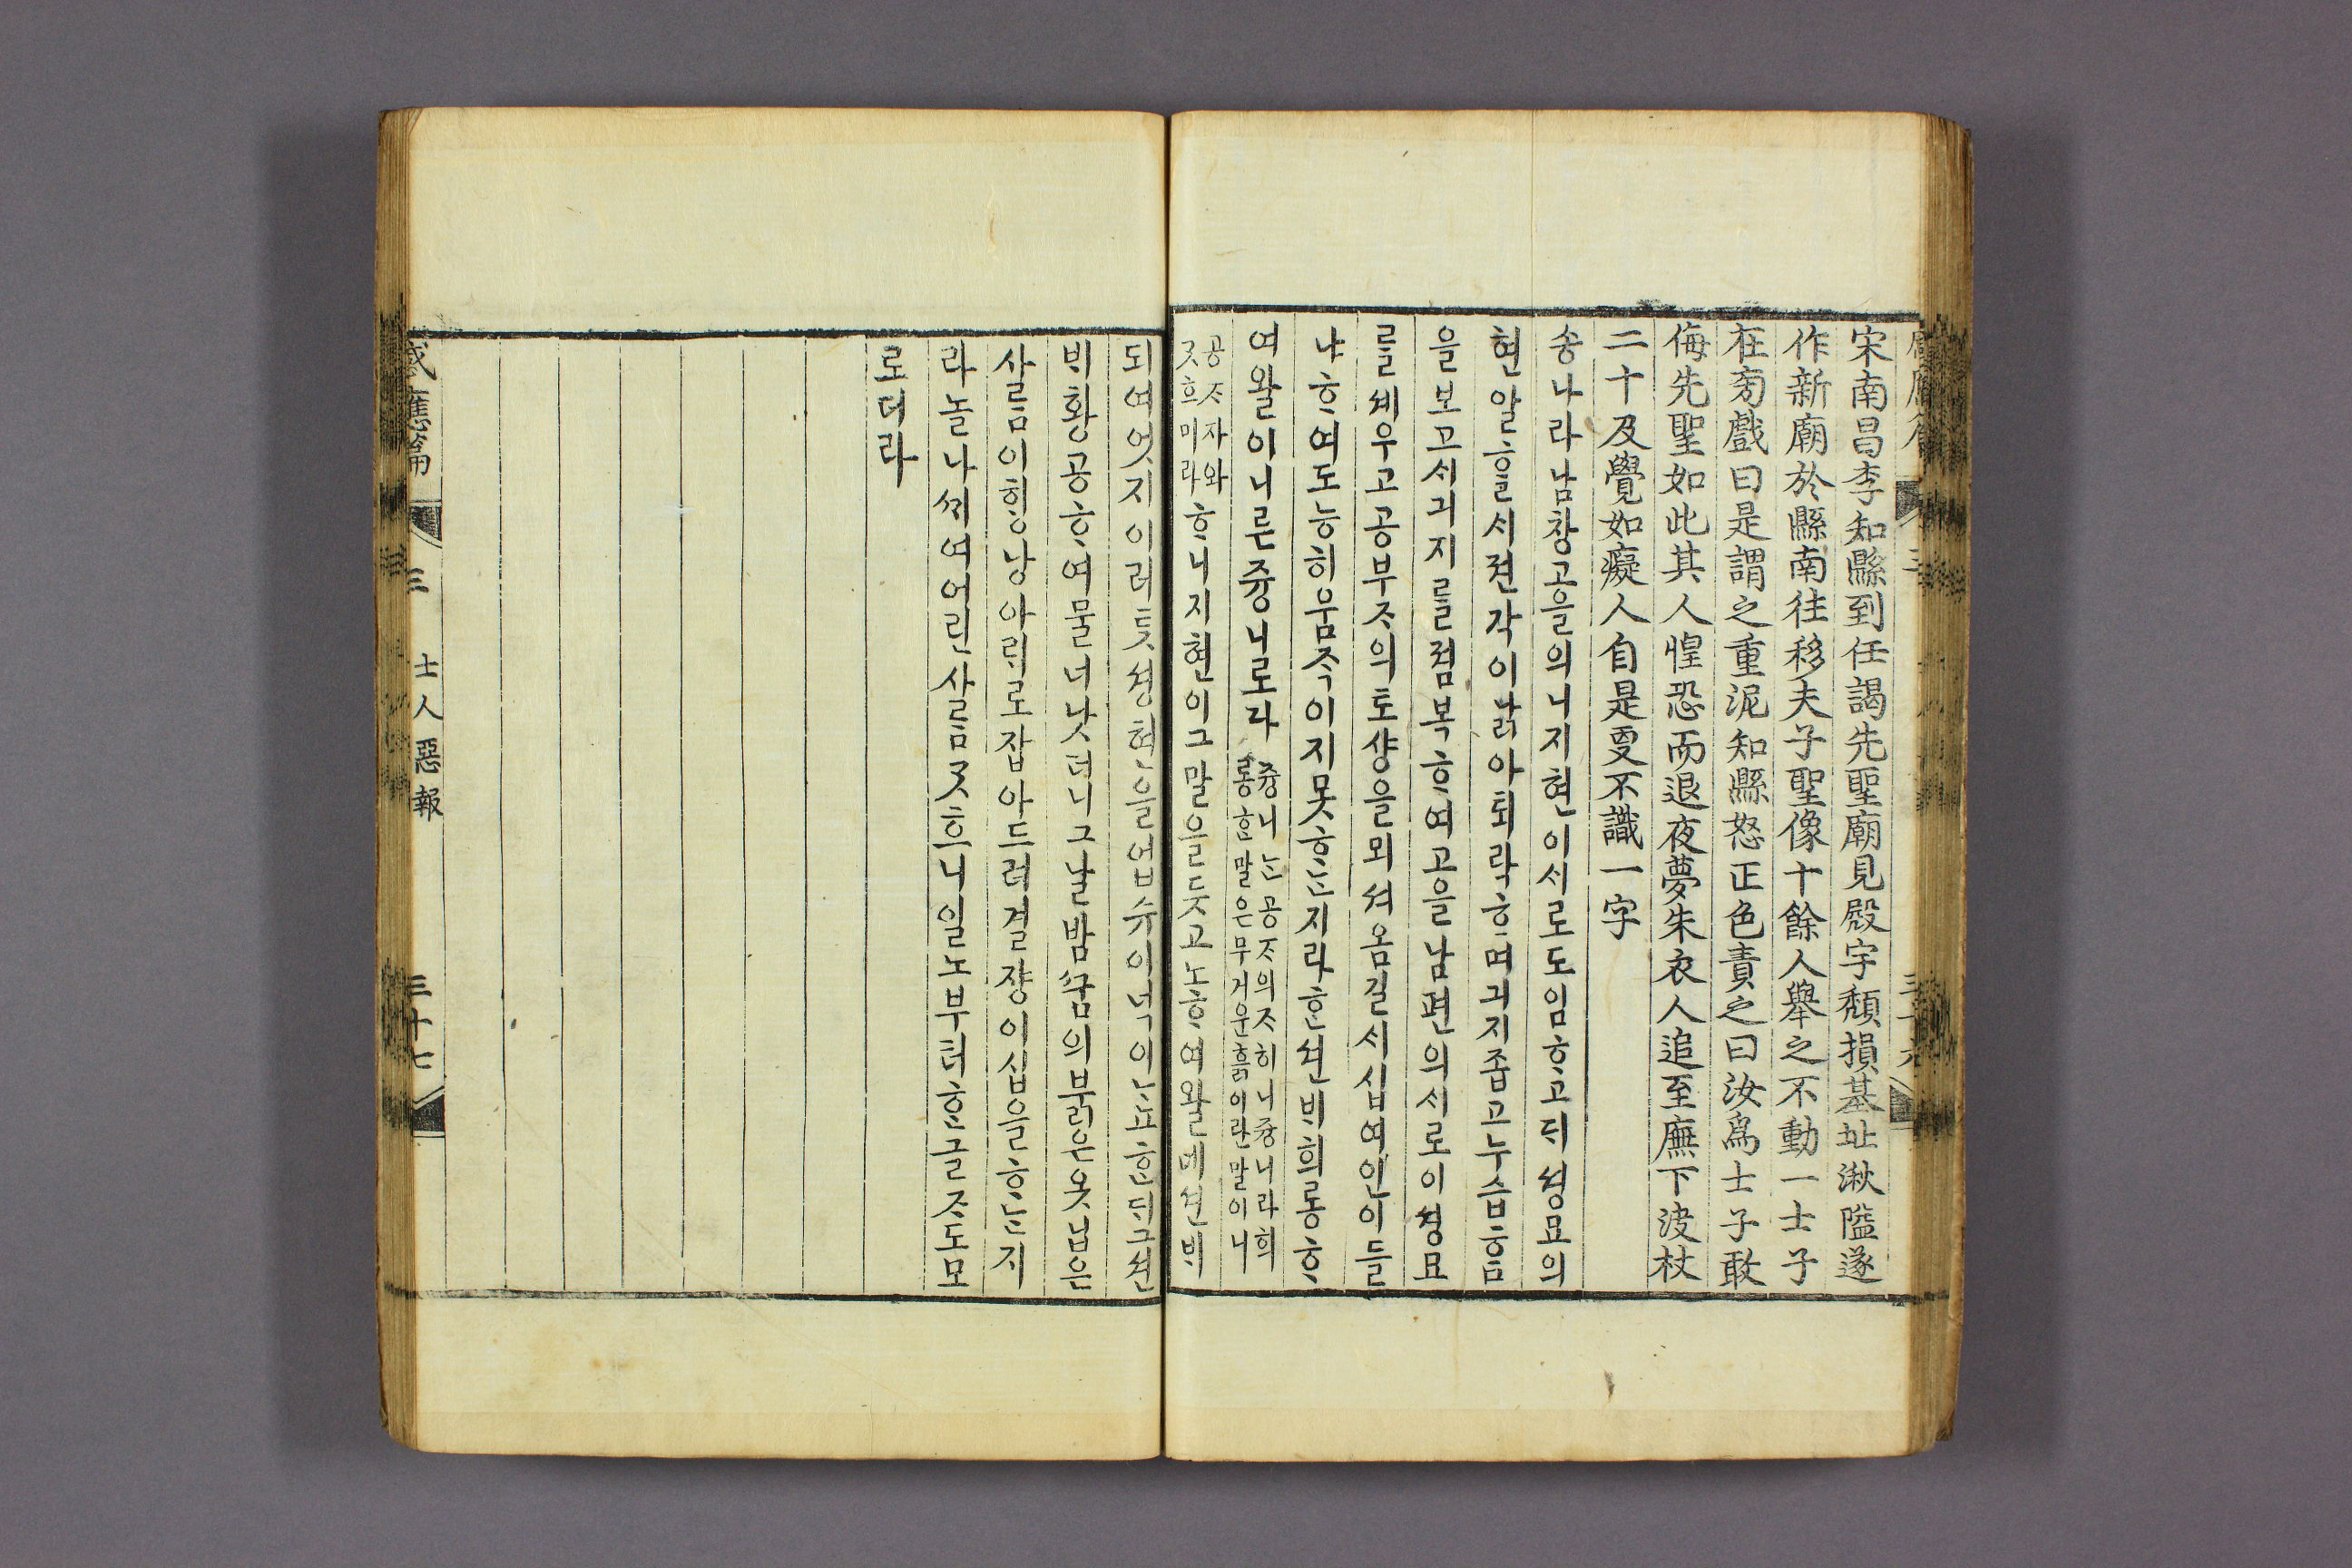 宋南昌李知縣到任謁先聖廟見殿宇頹損基址湫隘遂
作新廟於縣南往移夫子聖像十餘人舉之不動一士子
在旁戲曰是謂之重泥知縣怒正色責之曰汝爲士子敢
侮先聖如此其人惶恐而退夜夢朱衣人追至廡下决杖
二十及覺如癡人自是更不識一字
송나라남창고을의니지현이새로도임ᄒᆞ고ᄃᆡ셩묘의
현알ᄒᆞᆯᄉᆡ젼각이낡아퇴락ᄒᆞ며긔지좁고누습ᄒᆞᆷ
을보고ᄉᆡ긔지ᄅᆞᆯ졈복ᄒᆞ여고을남편의ᄉᆡ로이셩묘
ᄅᆞᆯ셰우고공부ᄌᆞ의토샹을뫼셔옴길ᄉᆡ십여인이들
냐ᄒᆞ여도능히움ᄌᆨ이지못ᄒᆞᄂᆞᆫ지라ᄒᆞᆫ션ᄇᆡ희롱ᄒᆞ
여왈이니른즁니로라
즁니ᄂᆞᆫ공ᄌᆞ의ᄌᆞ히니즁니라희
롱ᄒᆞᆷ말은무거운흙이란말이니
공ᄌᆞ자와
ᄀᆞᆺᄒᆞ미라
ᄒᆞ니지현이그말을듯고노ᄒᆞ여왈네션ᄇᆡ
되여엇지이러ᄐᆞᆺ셩현을업슈이넉이ᄂᆞ뇨ᄒᆞᆫᄃᆡ그션
ᄇᆡ황공ᄒᆞ여물너낫더니그날밤ᄭᅮᆷ의붉은옷닙은
사ᄅᆞᆷ이ᄒᆡᆼ낭아ᄅᆡ로잡아드려결쟝이십을ᄒᆞᄂᆞᆫ지
라놀나ᄭᆡ여어린사ᄅᆞᆷᄀᆞᆺᄒᆞ니일노부터ᄒᆞᆫ글ᄌᆞ도모
로더라
感應篇 三 士人惡報 三十七